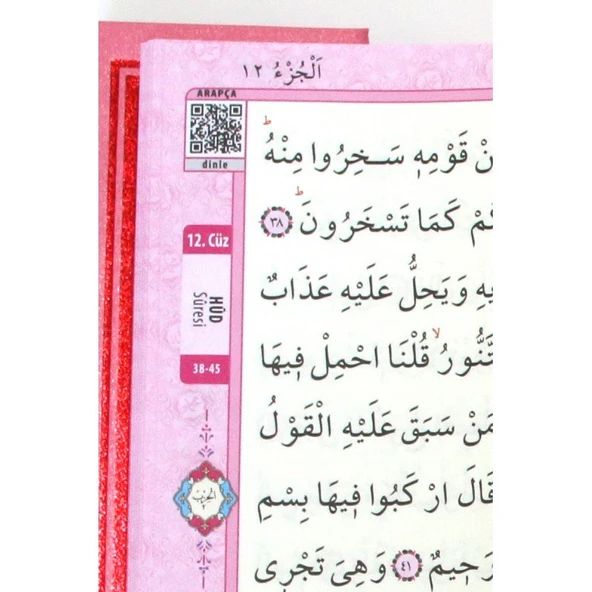 اَلْجُزْءُ ١٢
ARAPÇA
dinle
12. Cüz
HÛD
Sûresi
38-45
قَوْمِه۪ سَخِرُوا مِنْهُ
كَمَا تَسْخَرُونَ ٣٨
وَيَحِلُّ عَلَيْهِ عَذَابٌ
قُلْنَا احْمِلْ ف۪يهَا
مَنْ سَبَقَ عَلَيْهِ الْقَوْلُ
قَالَ ارْكَبُوا ف۪يهَا بِسْمِ
رَح۪يمٌ ٤١ وَهِيَ تَجْر۪ي